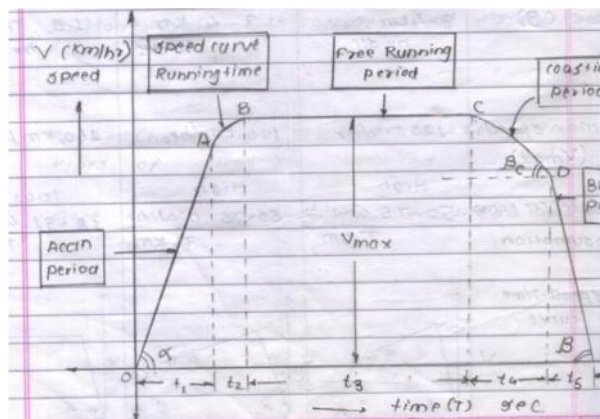 V (km/hr)
speed
speed curve
Running time
Free Running
period
coasti
period
A
B
C
βc
D
B
P
Accln
period
Vmax
O
α
β
t₁
t₂
t₃
t₄
t₅
time (T) sec